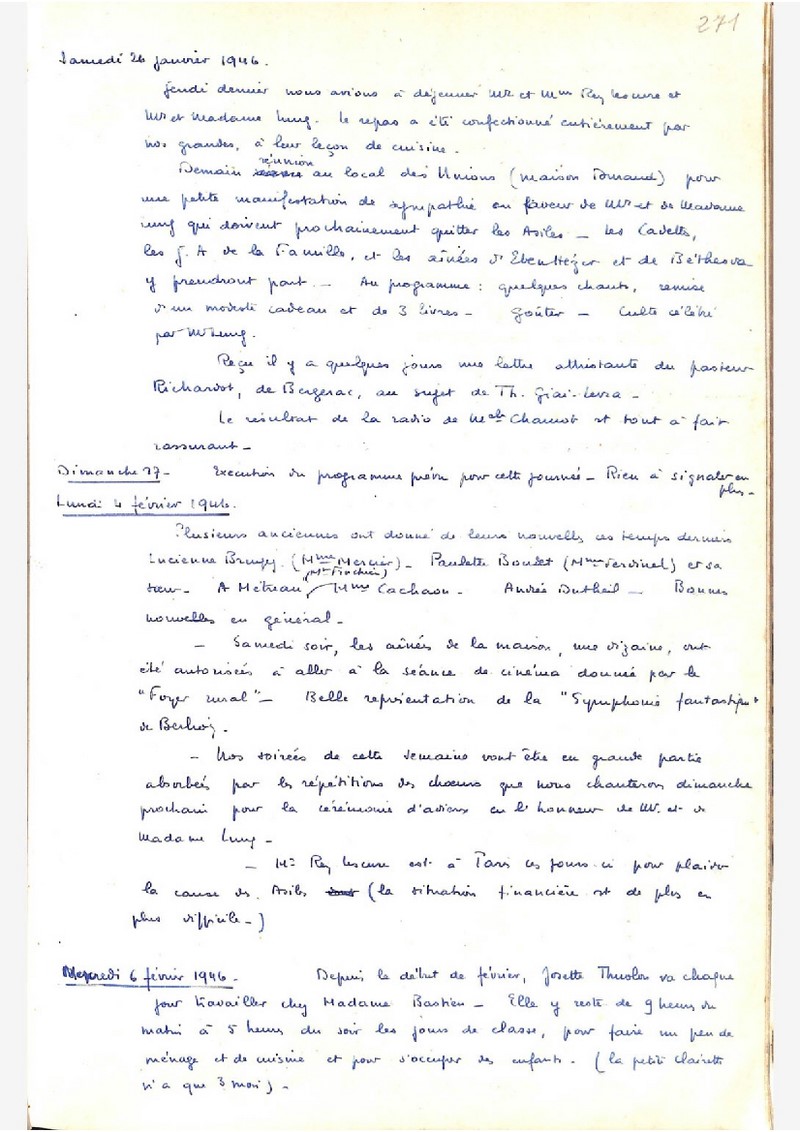 271
Samedi 26 janvier 1946.
Jeudi dernier nous avions à déjeuner Mr et Mme Rey Lescure et
Mr et Madame Lung. Le repas a été confectionné entièrement par
nos grandes, à leur leçon de cuisine.
réunion
Demain au local des Unions (maison Durand) pour
une petite manifestation de sympathie en faveur de Mr et de Madame
Lung qui doivent prochainement quitter les Asiles - Les Cadettes,
les J. A de la Famille, et les aînées d'Ebenhézer et de Béthesda
y prendront part. - Au programme : quelques chants, remise
d'un modeste cadeau et de 3 livres - Goûter - Culte célébré
par Mr Lung.
Reçu il y a quelques jours une lettre attristante du pasteur
Richardot, de Bergerac, au sujet de Th. Giai-Levra -
Le résultat de la radio de Melle Chamot est tout à fait
rassurant -
Dimanche 27 - Exécution du programme prévu pour cette journée - Rien à signaler en
plus -
Lundi 4 février 1946.
Plusieurs anciennes ont donné de leurs nouvelles ces temps derniers
Lucienne (Mme Mercier) - Paulette Boulet (Mme ) et sa
soeur - A Métreau, Mme Cachaou - Andrée Dutheil - Bonnes
nouvelles en général -
- Samedi soir, les aînées de la maison, une dizaine, ont
été autorisées à aller à la séance de cinéma donnée par le
"Foyer rural" - Belle représentation de la "Symphonie fantastique"
de Berlioz.
- Nos soirées de cette semaine vont être en grande partie
absorbées par les répétitions des choeurs que nous chanterons dimanche
prochain pour la cérémonie d'adieux en l'honneur de Mr. et de
Madame Lung -
- Mr Rey Lescure est à Paris ces jours-ci pour plaider
la cause des Asiles (la situation financière est de plus en
plus difficile -)
Mercredi 6 février 1946 - Depuis le début de février, Josette va chaque
jour travailler chez Madame Bastien - Elle y reste de 9 heures du
matin à 5 heures du soir les jours de classe, pour faire un peu de
ménage et de cuisine et pour s'occuper des enfants - (la petite Clairette
n'a que 3 mois) -